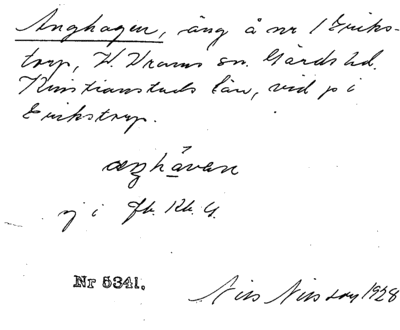 Änghagen, äng å nr 1 Eriks-
torp, V. Vrams sn. Gärds hd.
Kristianstads län, vid p i
Erikstorp.
ej i Jb. Kb. G.
Nr 5341.
Nils Nilsson 1928